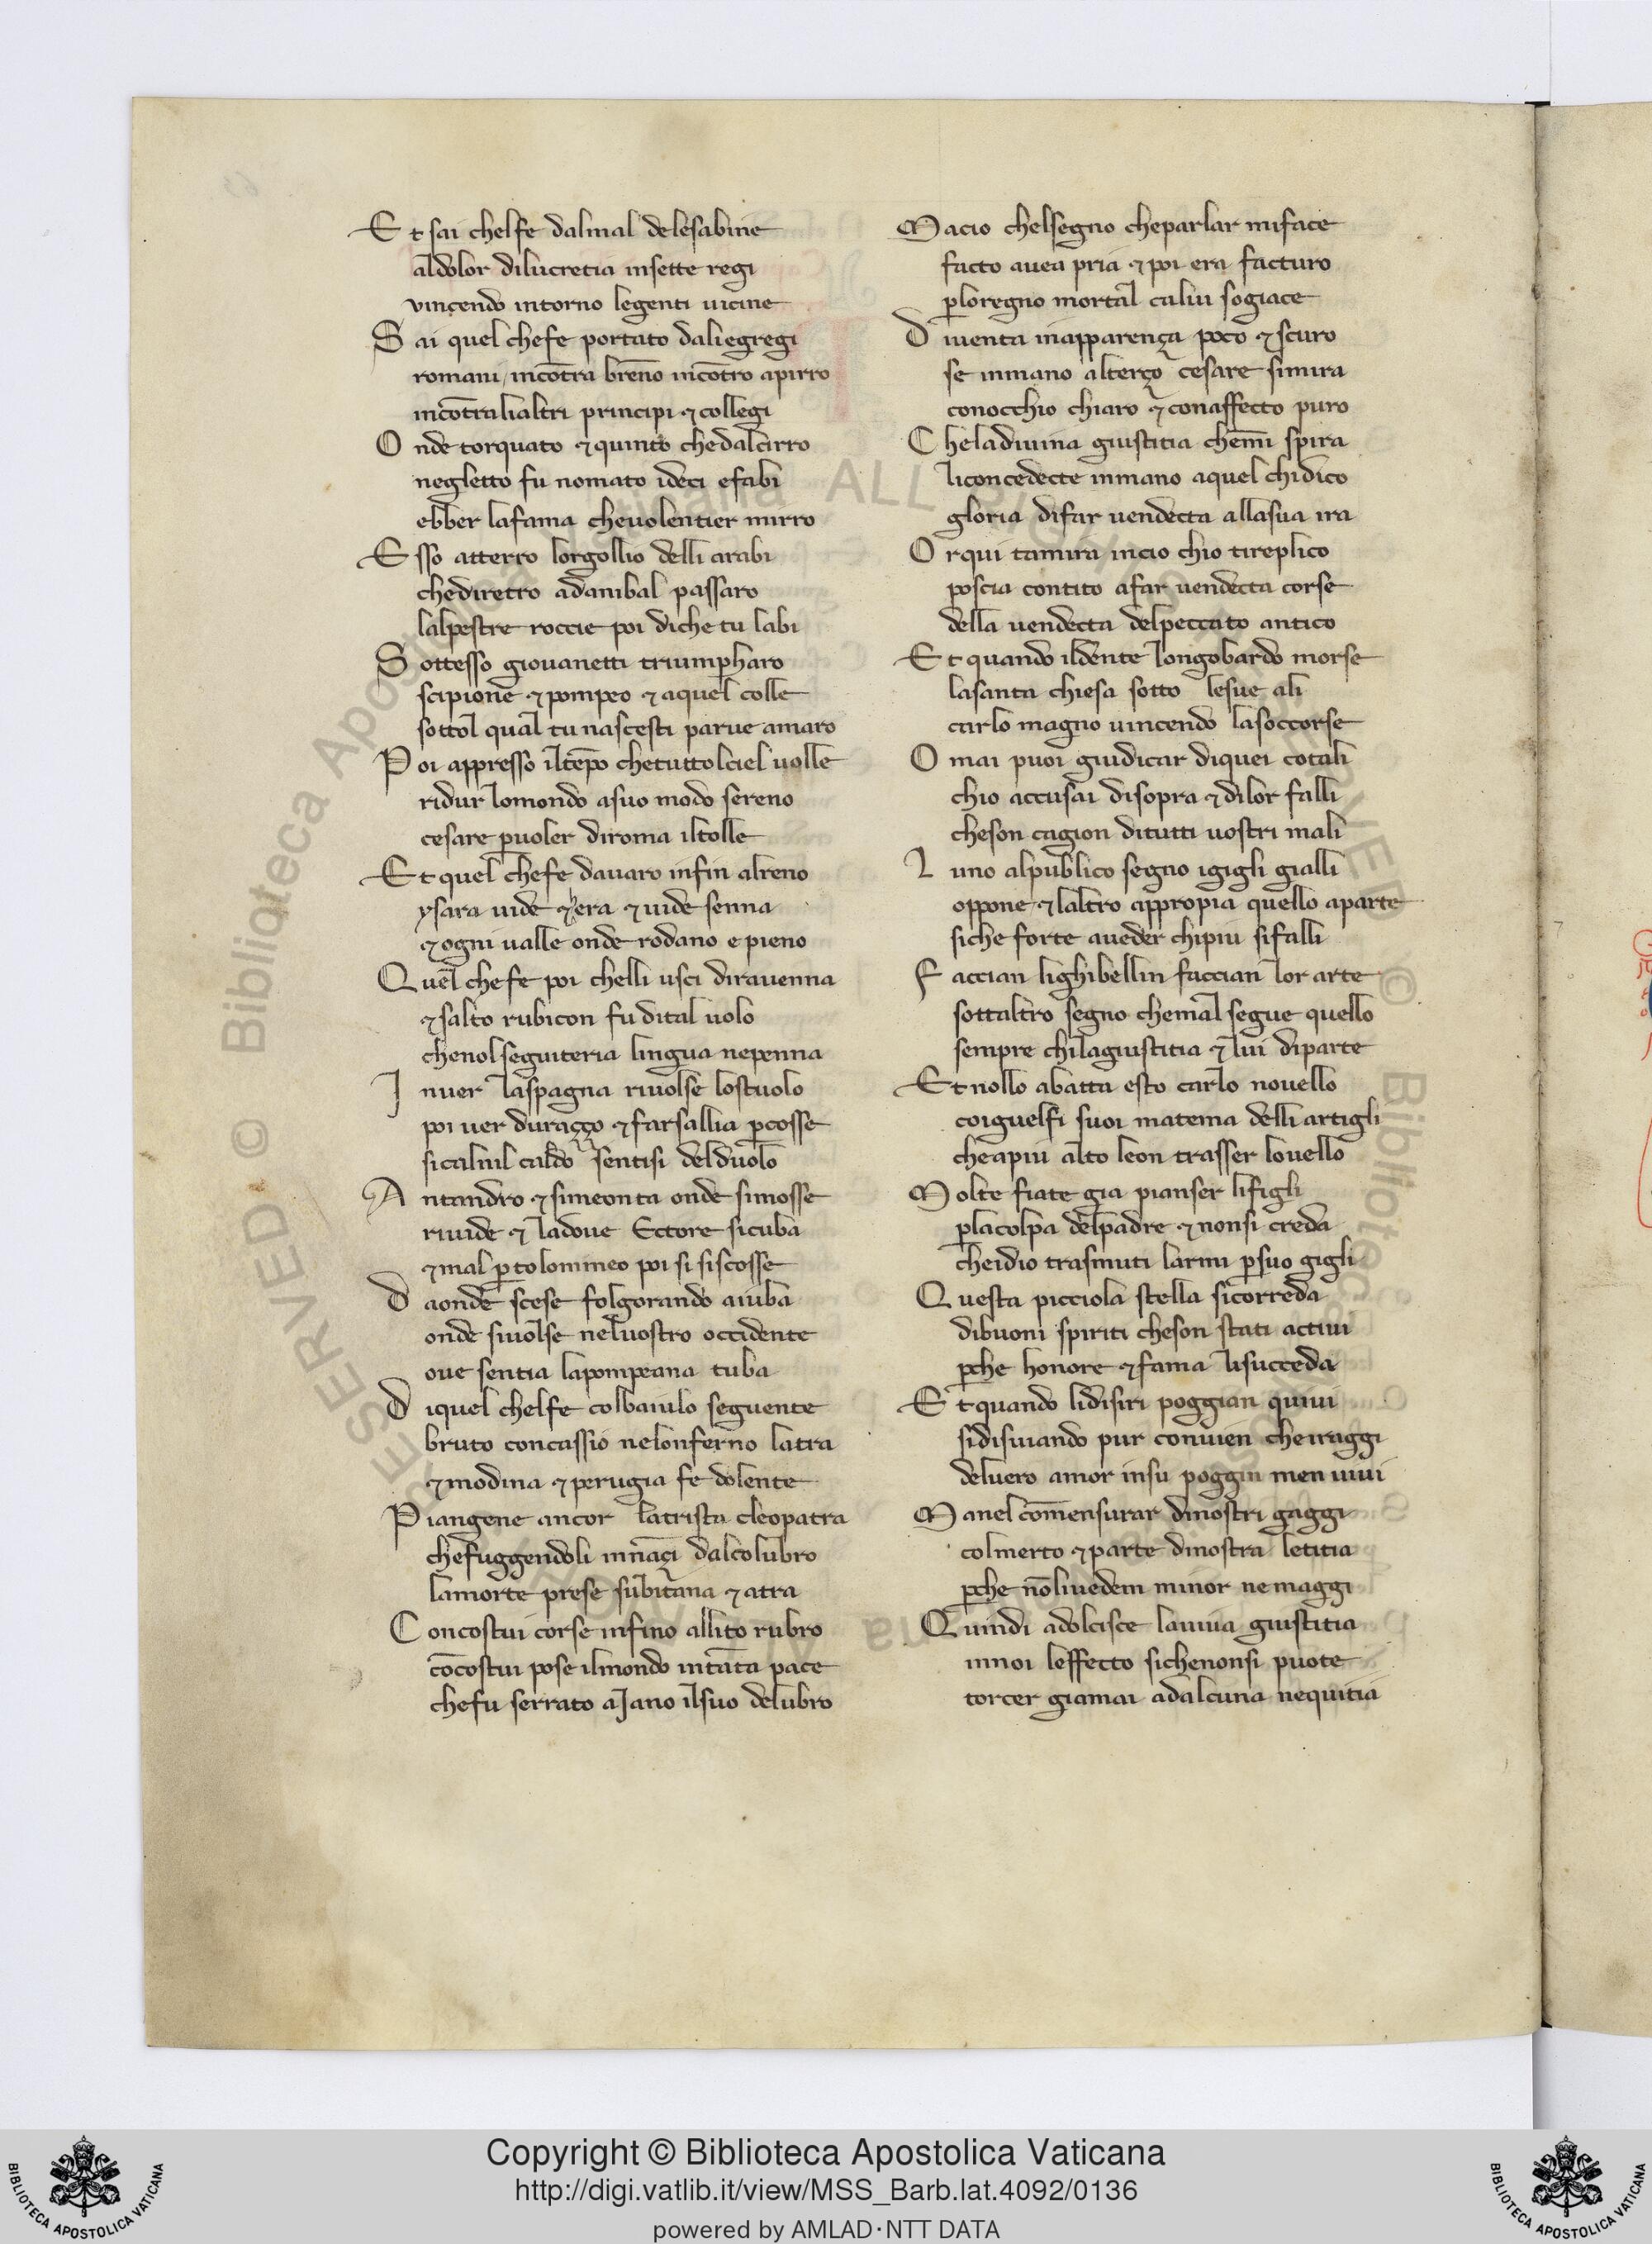 Et sai chelfe dalmal delesabine
aldolor dilucretia insette regi
vinçendo intorno legenti uicine
Sai quel chefe portato daliegregi
romani / incōtra brēno incōtro apirro
incōtralialtri principi ⁊ collegi
Onde torquato ⁊ quinto chedalcirro
negletto fu nomato ideci efabi
ebber lafama cheuolentier mirro
Esso atterro lorgollio delli arabi
chediretro adanibal passaro
lalpestre roccie poi diche tu labi
Sottesso giouanetti triumpharo
scipione ⁊ pompeo ⁊ aquel colle
sottol qual tu nascesti parue amaro
Poi appresso iltēpo chetuttolciel uolle
ridur lomondo asuo modo sereno
cesare ꝑuoler diroma iltolle
Et quel chefe dauaro infin alreno
ysara uide ⁊ era ⁊ uide senna
⁊ ogni ualle onde rodano e pieno
Quel chefe poi chelli usci dirauenna
⁊ salto rubicon fu dital uolo
chenol seguiteria lingua nepenna
Inuer laspagna riuolse lostuolo
poi uer duraçço ⁊ farsallia ꝑcosse
sicalnil caldo sentisi delduolo
Antandro ⁊ simeonta onde simosse
riuide ⁊ ladoue Ectore sicuba
⁊ mal ꝑ tolommeo poi si siscosse
Daonde scese folgorando aiuba
onde siuolse neluostro occidente
oue sentia lapompeana tuba
Diquel chelfe colbaiulo seguente
bruto concassio nelonferno latra
⁊ modina ⁊ perugia fe dolente
Piangene ancor latrista cleopatra
chefuggendoli innāçi dalcolubro
lamorte prese subitana ⁊ atra
Concostui corse infino allito rubro
cōcostui pose ilmondo intāta pace
chefu serrato aJano ilsuo delubro
Macio chelsegno cheparlar miface
facto auea pria ⁊ poi era facturo
ꝑloregno mortal calui sogiace
Diuenta inapparença poco ⁊ scuro
se inmano alterço cesare simira
conocchio chiaro ⁊ conaffecto puro
Cheladiuina giustitia chemi spira
liconcedecte inmano aquel chidico
gloria difar uendecta allasua ira
Orqui tamira incio chio tireplico
poscia contito afar uendecta corse
della uendecta delpeccato antico
Et quando ildente longobardo morse
lasanta chiesa sotto lesue ali
carlo magno uincendo lasoccorse
Omai puoi giudicar diquei cotali
chio accusai disopra ⁊ dilor falli
cheson cagion ditutti uostri mali
Luno alpublico segno igigli gialli
oppone ⁊ laltro appropia quello aparte
siche forte aueder chipiu sifalli
Faccian lighibellin faccian lor arte
sottaltro segno chemal segue quello
sempre chilagiustitia ⁊ lui diparte
Et nollo abatta esto carlo nouello
coiguelfi suoi matema delli artigli
cheapiu alto leon trasser louello
Molte fiate gia pianser lifigli
ꝑlacolpa delpadre ⁊ nonsi creda
cheidio trasmuti larmi ꝑsuo gigli
Questa picciola stella sicorreda
dibuoni spiriti cheson stati actiui
ꝑche honore ⁊ fama lisucceda
Et quando lidisiri poggian quiui
sidisuiando pur conuien cheiraggi
deluero amor insu poggin men uiui
Manel cōmensurar dinostri gaggi
colmerto ⁊ parte dinostra letitia
ꝑche nōliuedem minor nemaggi
Quindi adolcisce lauiua giustitia
innoi leffecto sichenonsi puote
torcer giamai adalcuna nequitia
Copyright © Biblioteca Apostolica Vaticana
http://digi.vatlib.it/view/MSS_Barb.lat.4092/0136
powered by AMLAD·NTT DATA
BIBLIOTECA APOSTOLICA VATICANA
BIBLIOTECA APOSTOLICA VATICANA